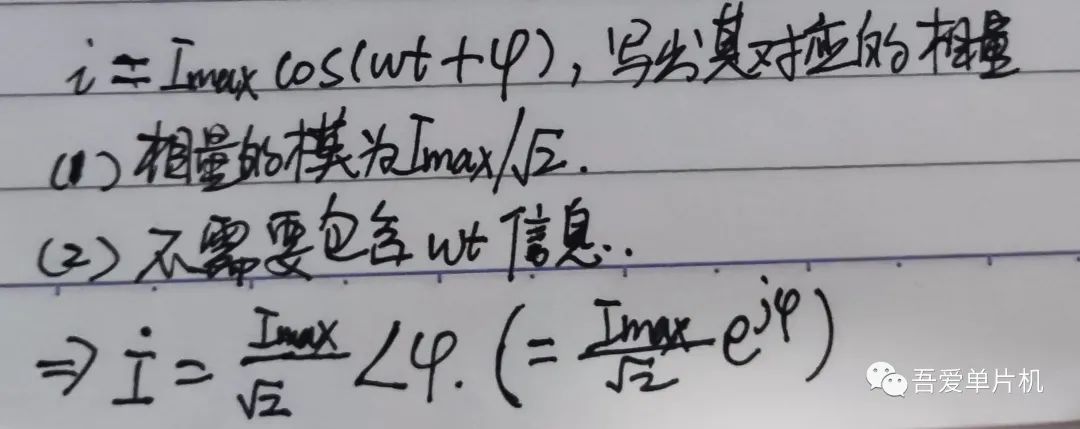 i = Imax cos(wt+φ), 写出其对应的相量
(1) 相量的模为Imax/√2.
(2) 不需要包含wt信息..
⇒ İ = Imax/√2 ∠φ. (= Imax/√2 e^jφ)
吾爱单片机